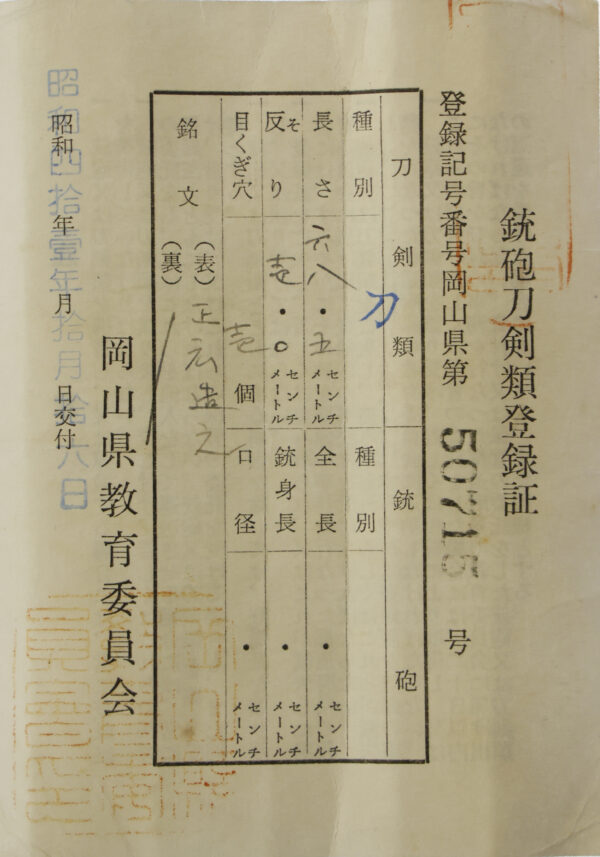 銃砲刀剣類登録証
登録記号番号岡山県第 50715 号
刀剣類 銃砲
種別 刀 種別
長さ 六八・五 センチメートル 全長 ・ センチメートル
反り そ 壱・〇 センチメートル 銃身長 ・ センチメートル
目くぎ穴 壱 個 口径 ・ センチメートル
銘文 (表) 正広造之
(裏)
岡山県教育委員会
昭和 年 月 日交付
昭和四拾壹年拾月拾八日